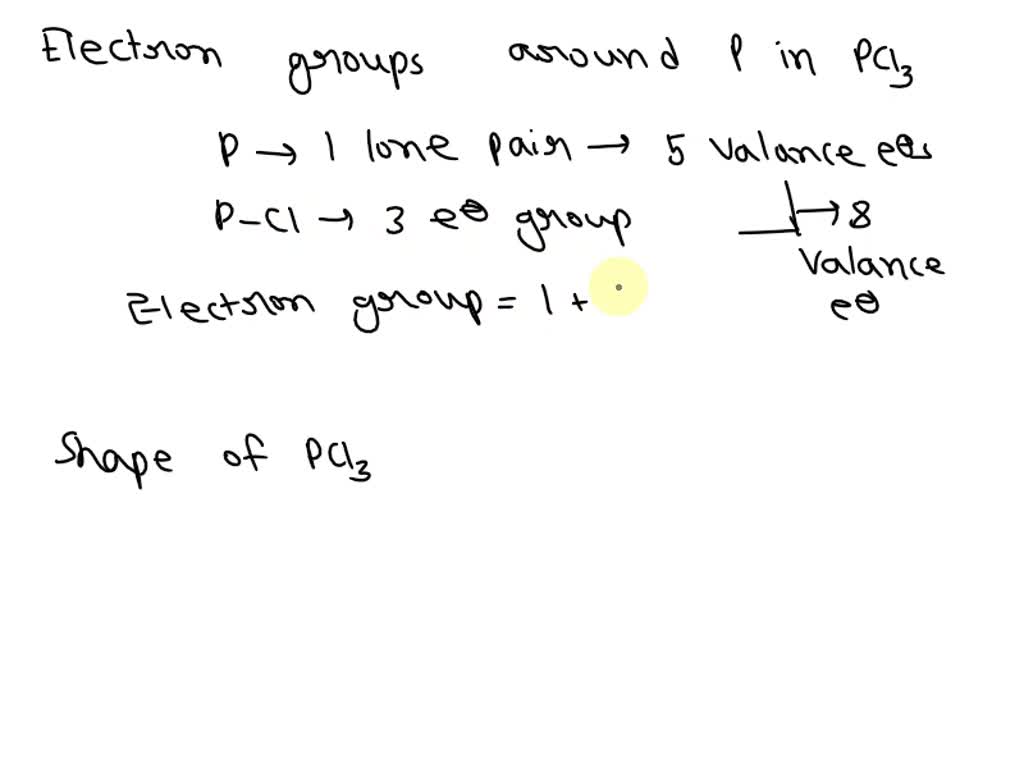 Electron groups around P in PCl3
P → 1 lone pair → 5 valance e⊖s
P-Cl → 3 e⊖ group → 8
valance
Electron group = 1 + e⊖
Shape of PCl3